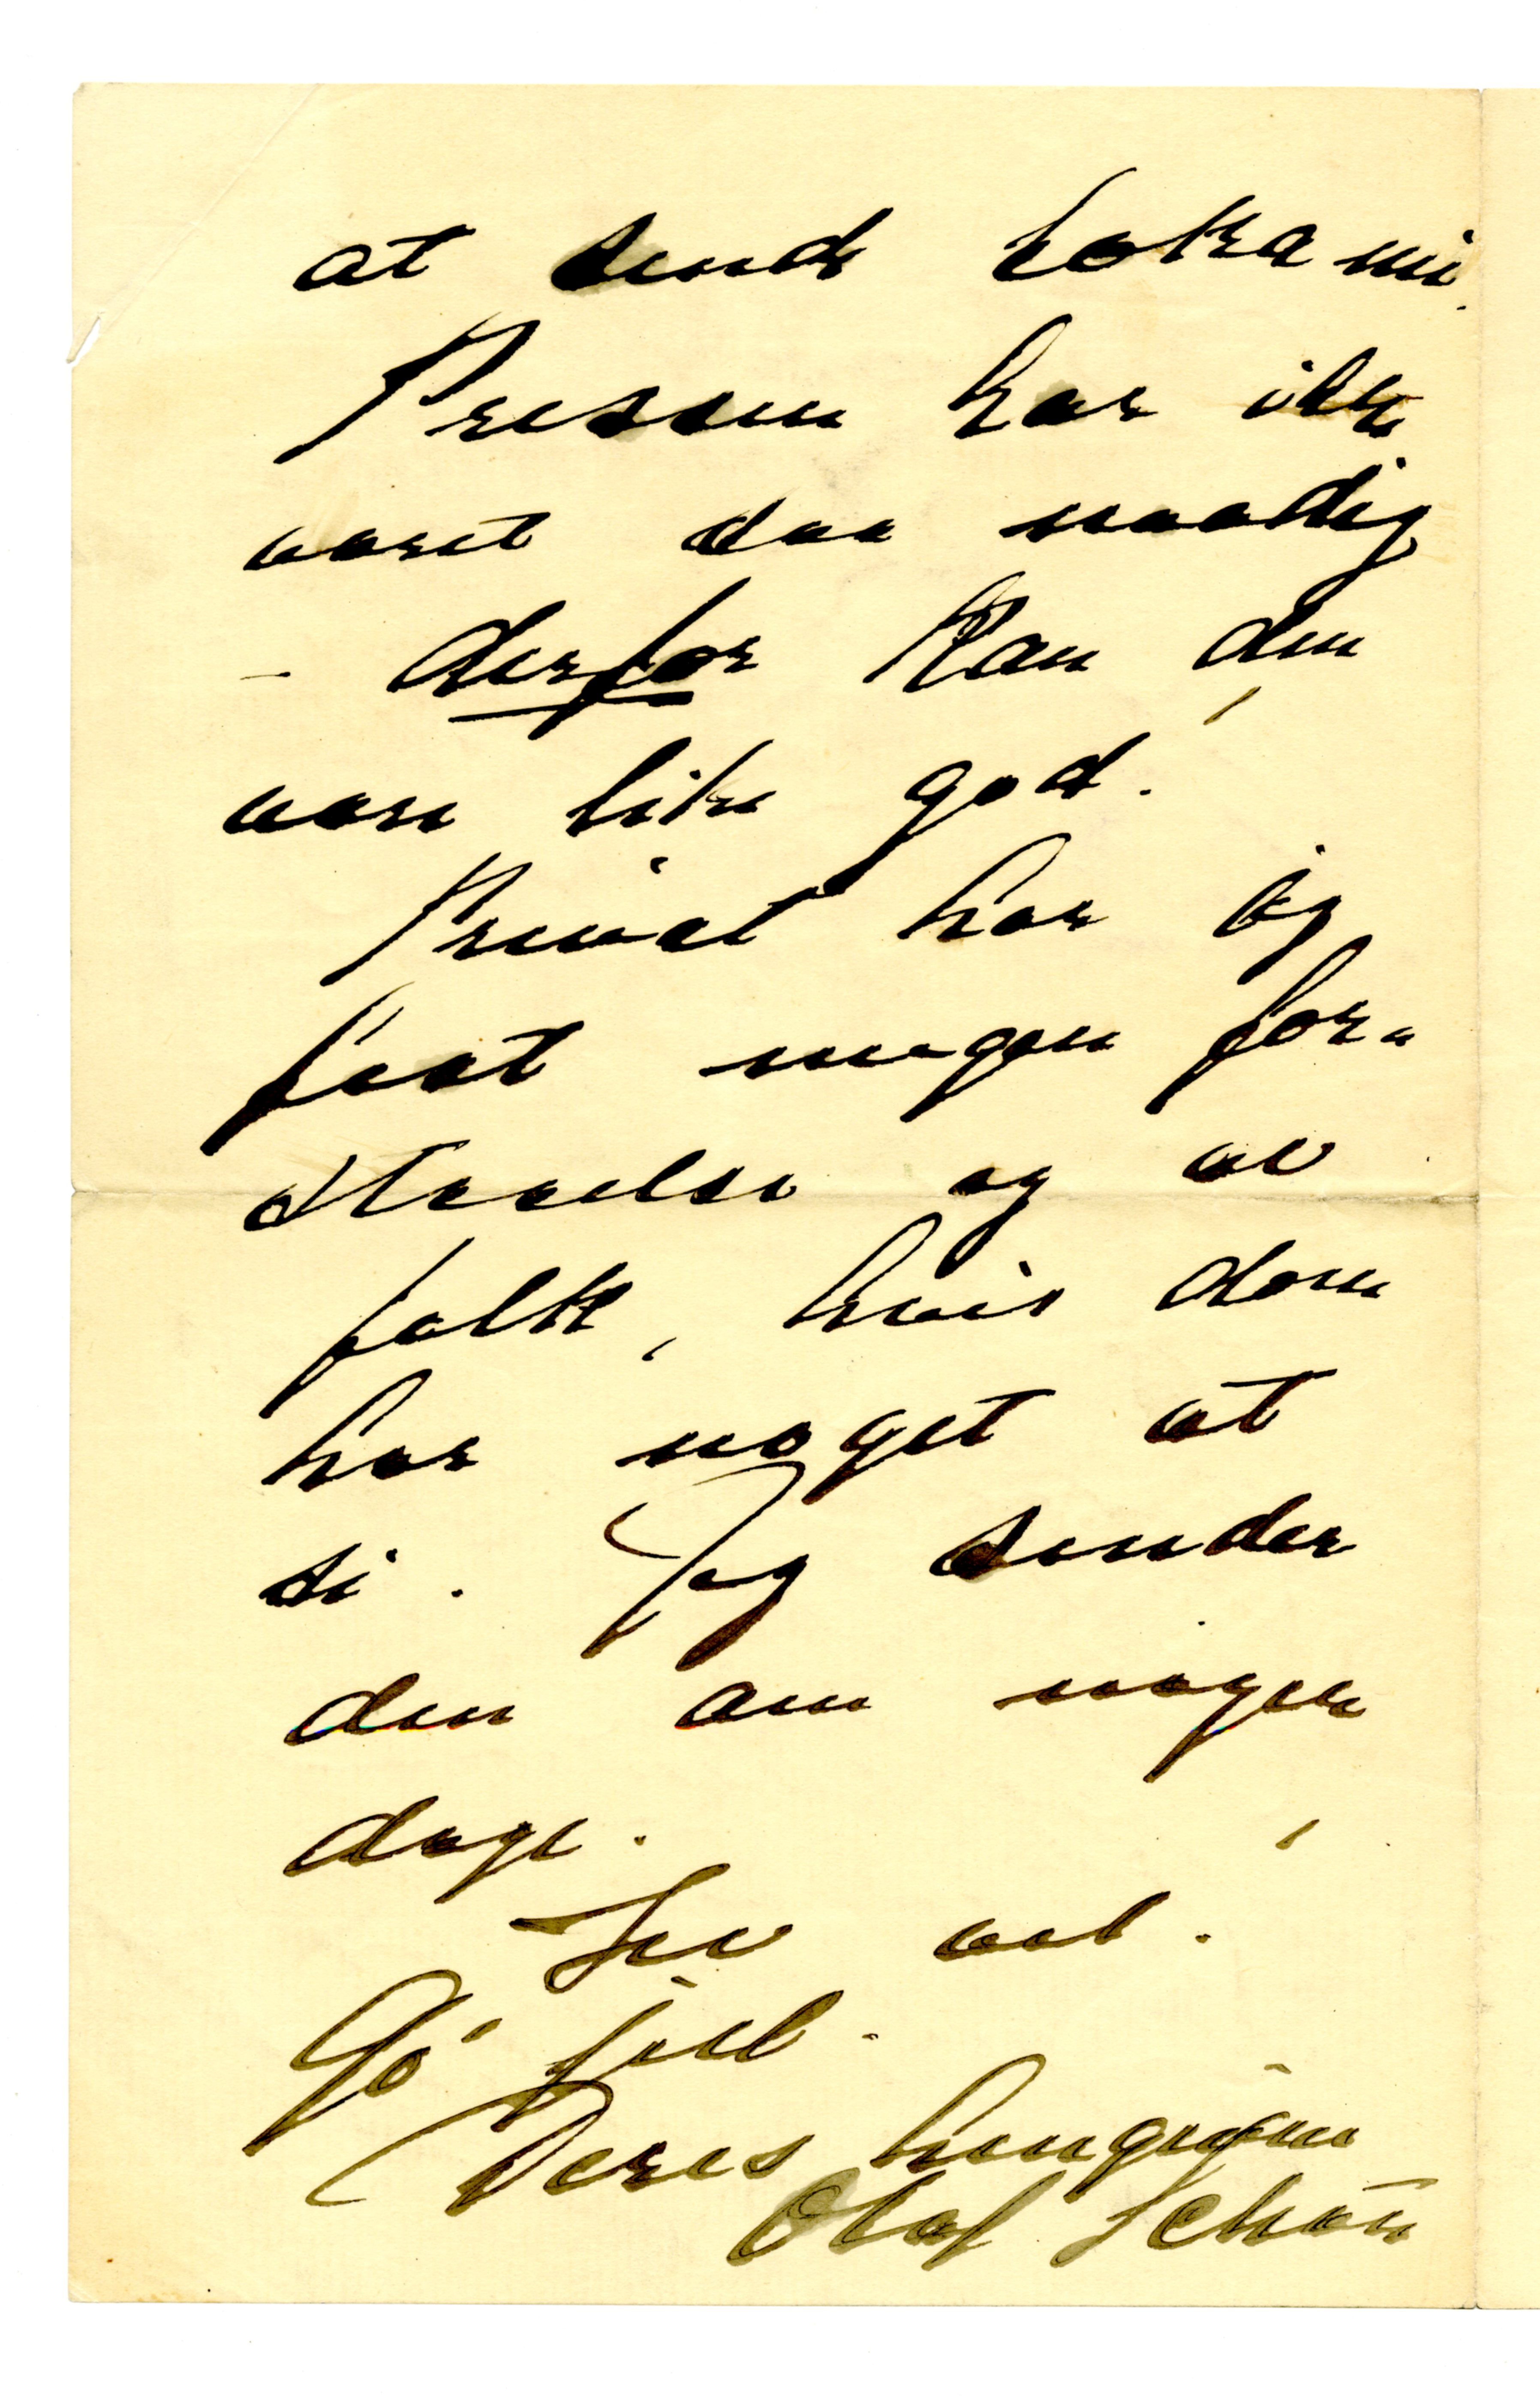 at sende boka mi.
Pressen har ikke
været saa naadig
- derfor kan den
være like god.
Privat har jeg
faat megen for-
staaelse og av
folk, hvis dom
har noget at
si. Jeg sender
den om nogen
dage.
Lev vel.
Go' jul.
Deres hengivne
Olaf Schou